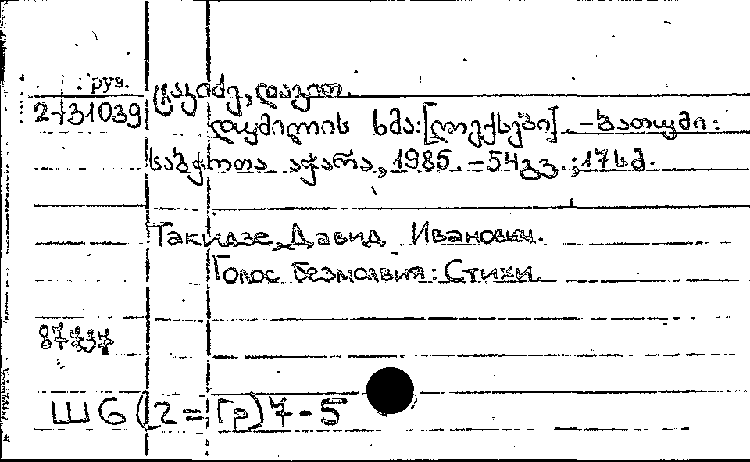 груз.
2-31039
ტაკიძე, დავით.
დუმილის ხმა: [ლექსები]. – ბათუმი:
საბჭოთა აჭარა, 1985. – 54გვ. ; 17სმ.
Такидзе, Давид Иванович.
Голос безмолвия: Стихи.
Ш6(2=Гр)7-5